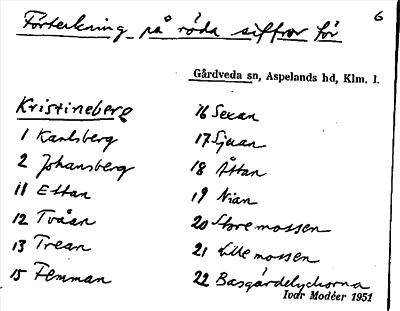 6
Förteckning på röda siffror för
Gårdveda sn, Aspelands hd, Klm. l.
Kristineberg
1 Karlsberg
2 Johansberg
11 Ettan
12 Tvåan
13 Trean
15 Femman
16 Sexan
17 Sjuan
18 Åttan
19 Nian
20 Storemossen
21 Lillemossen
22 Basgårdelyckorna
Ivar Modéer 1951